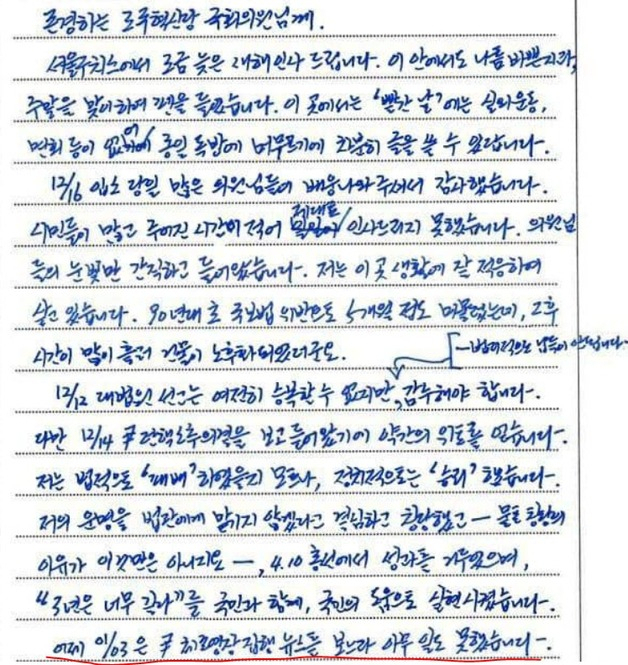 존경하는 조국혁신당 국회의원님께.
서울구치소에서 조금 늦은 새해인사 드립니다. 이 안에서도 나름 바쁜지라,
주말을 맞이하여 펜을 들었습니다. 이 곳에서는 '빨간 날'에는 실외운동,
면회 등이 없어 종일 독방에 머무르기에 차분히 글을 쓸 수 있답니다.
12/16 입소 당일 많은 의원님들이 배웅나와주셔서 감사했습니다.
시민들이 많고 주어진 시간이 적어 제대로 인사드리지 못했습니다. 의원님
들의 눈빛만 간직하고 들어왔습니다. 저는 이 곳 생활에 잘 적응하여
살고 있습니다. 90년대 초 국보법 위반으로 5개월 정도 머물렀는데, 그후
시간이 많이 흘러 건물이 노후화되었더군요.
— 법리적으로 납득이 안됩니다 -
12/12 대법원 선고는 여전히 승복할 수 없지만, 감수해야 합니다.
다만 12/14 尹 탄핵소추의결을 보고 들어왔기에 약간의 위로를 얻습니다.
저는 법적으로 '패배'하였을지 모르나, 정치적으로는 '승리'했습니다.
저의 운명을 법관에게 맡기지 않겠다고 결심하고 창당했고 — 물론 창당의
이유가 이것만은 아니지요 —, 4.10 총선에서 성과를 거두었으며,
"3년은 너무 길다"를 국민과 함께, 국민의 도움으로 실현시켰습니다.
어제 01/03은 尹 체포영장 집행 뉴스를 보느라 아무 일도 못했습니다.